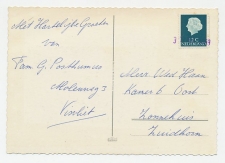 Met Hartelijke Groeten
van
Fam. G. Posthumus
Molenweg 3
Vinkit
12c
NEDERLAND
Mevr. Wed. Haan
Kamer 6 Oost
Zonnehuis
Zuidhorn